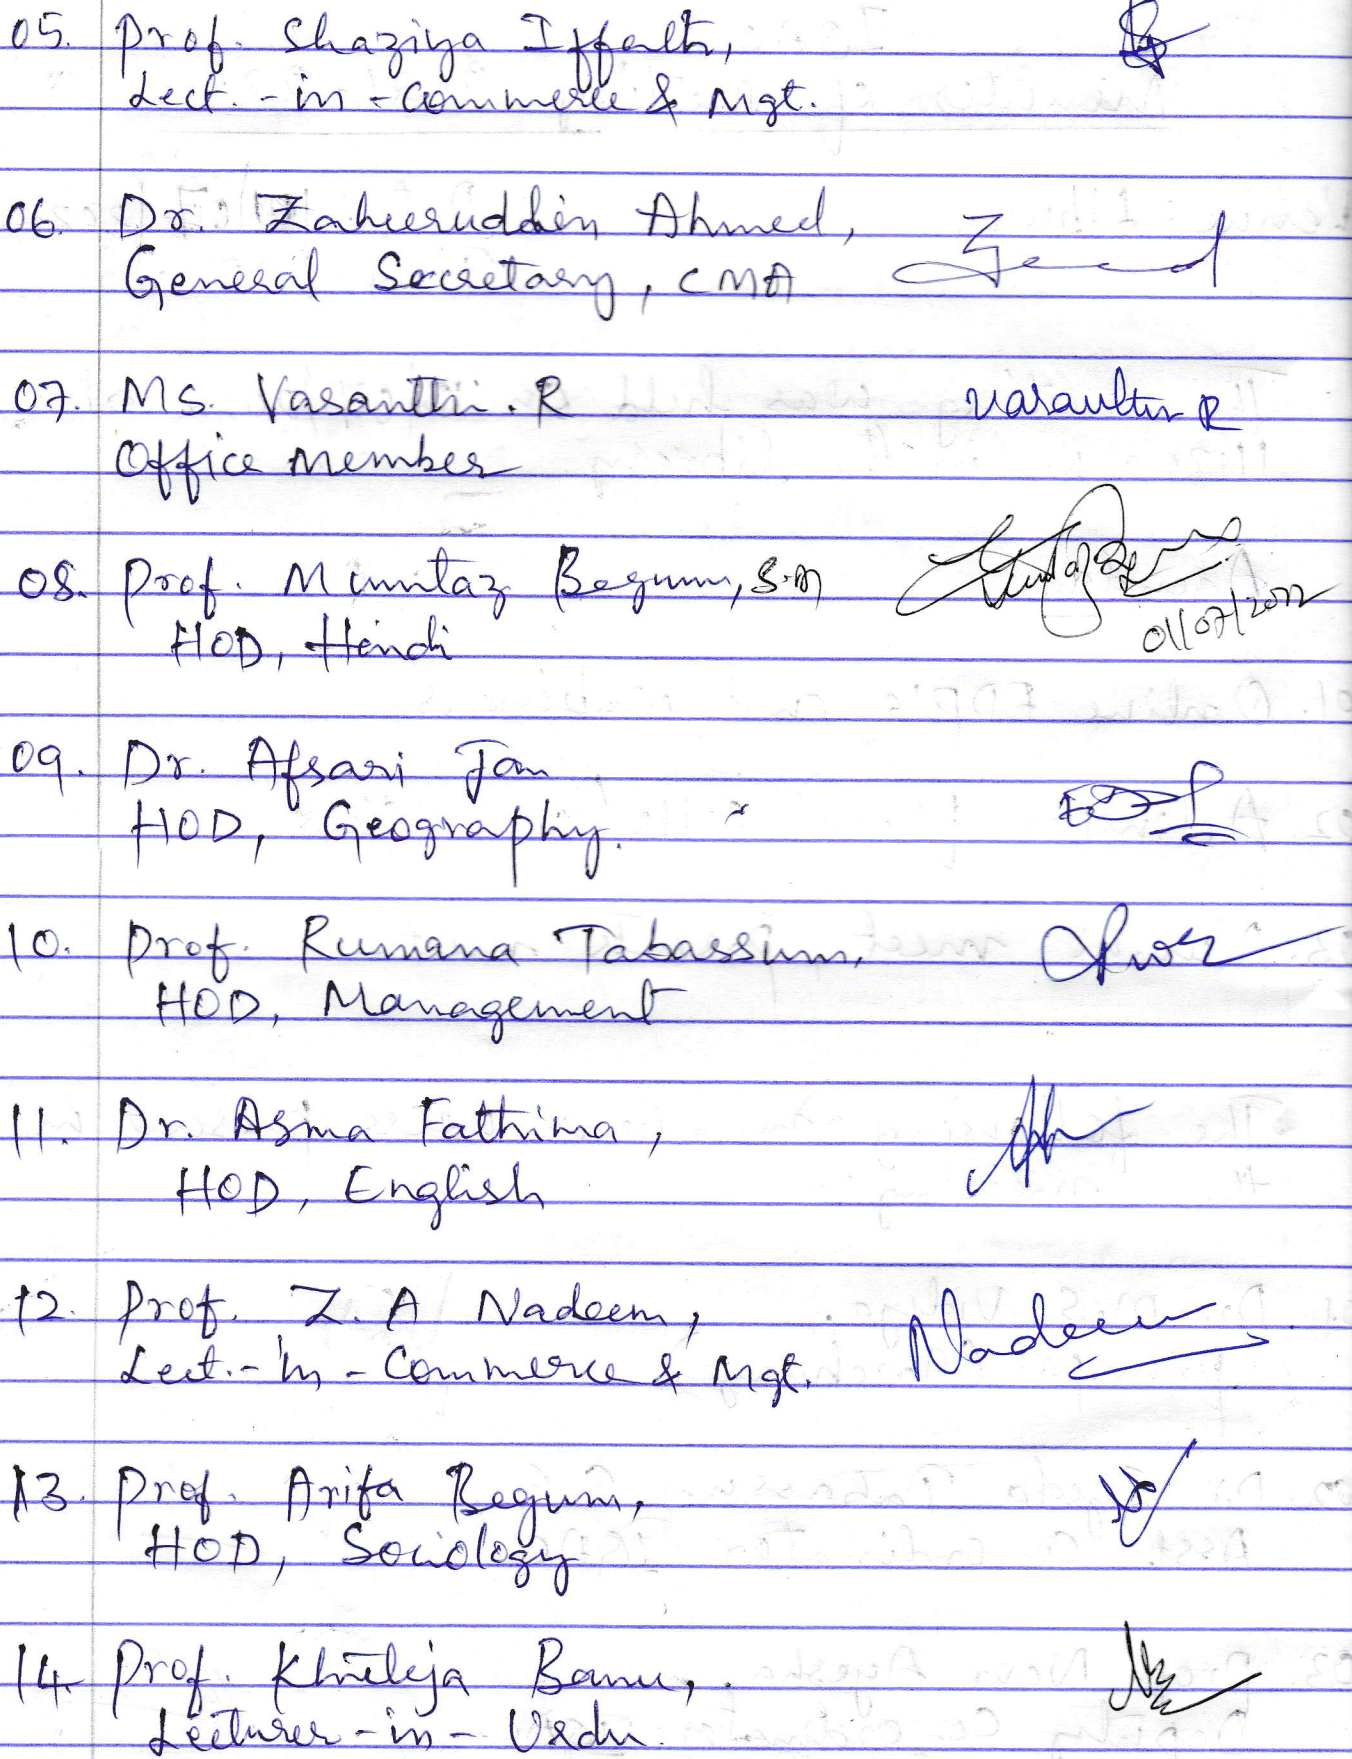 05. Prof. Shaziya Iffath,
Lect.-in-Commerce & Mgt.
06. Dr. Zaheeruddin Ahmed,
General Secretary, CMA
07. Ms. Vasanthi. R Vasanthi R
Office Member
08. Prof. Mumtaz Begum, S.M
HOD, Hindi 01/07/2022
09. Dr. Afsari Jan
HOD, Geography.
10. Prof. Rumana Tabassum,
HOD, Management
11. Dr. Asma Fathima,
HOD, English
12. Prof. Z. A Nadeem, Nadeem
Lect.-in-Commerce & Mgt.
13. Prof. Arifa Begum,
HOD, Sociology
14. Prof. Khuteja Banu,
Lecturer-in-Urdu.